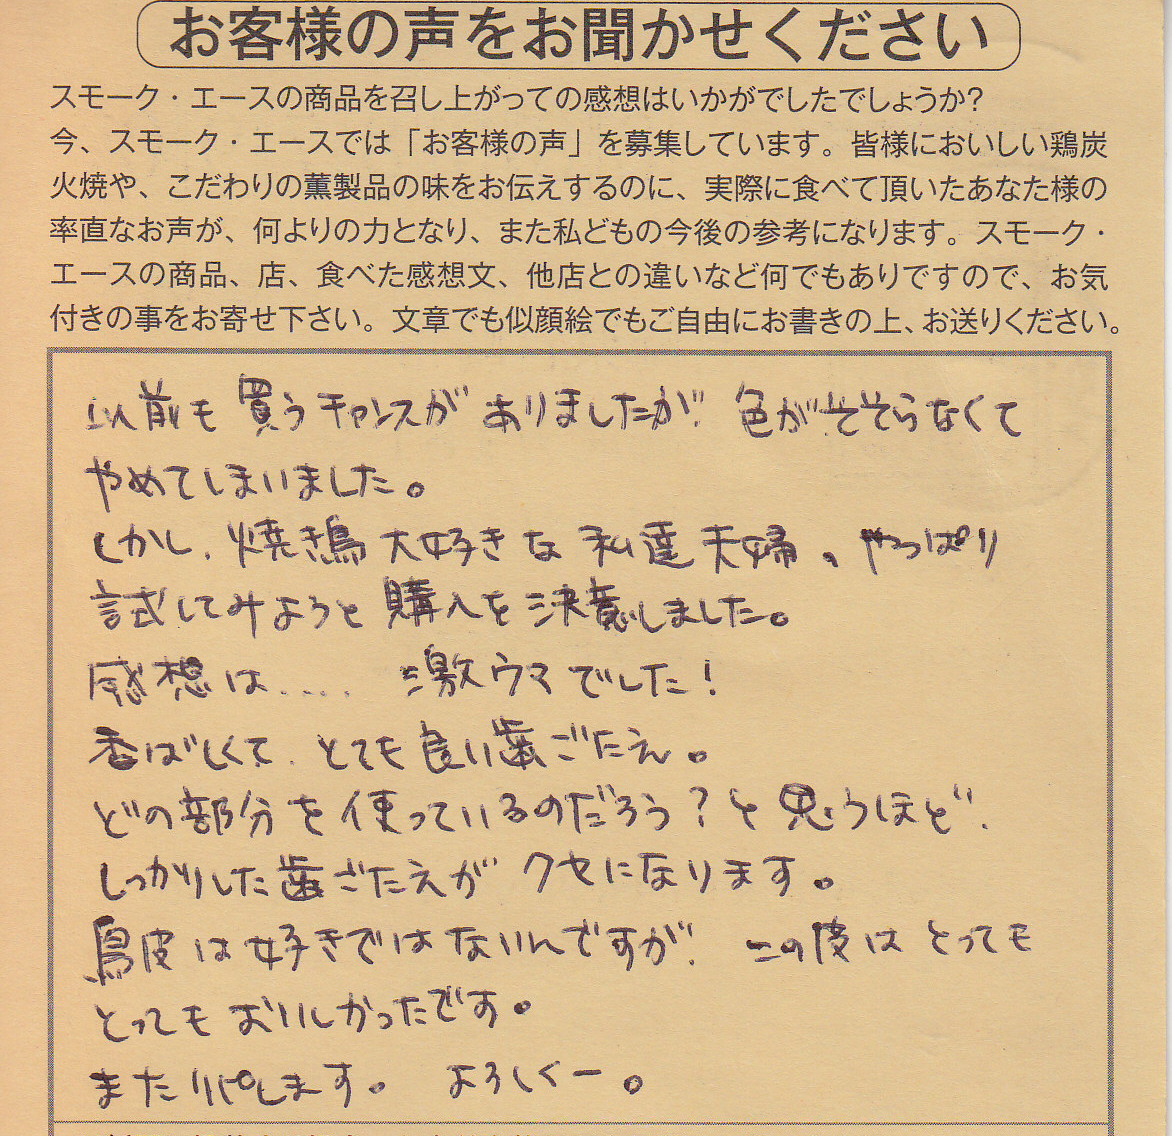 お客様の声をお聞かせください
スモーク・エースの商品を召し上がっての感想はいかがでしたでしょうか?
今、スモーク・エースでは「お客様の声」を募集しています。皆様においしい鶏炭
火焼や、こだわりの薫製品の味をお伝えするのに、実際に食べて頂いたあなた様の
率直なお声が、何よりの力となり、また私どもの今後の参考になります。スモーク・
エースの商品、店、食べた感想文、他店との違いなど何でもありですので、お気
付きの事をお寄せ下さい。文章でも似顔絵でもご自由にお書きの上、お送りください。
以前も買うチャンスがありましたが、色がそそらなくて
やめてしまいました。
しかし、焼き鳥大好きな私達夫婦、やっぱり
試してみようと購入を決意しました。
感想は.... 激ウマでした!
香ばしくて、とても良い歯ごたえ。
どの部分を使っているのだろう?と思うほど、
しっかりした歯ごたえがクセになります。
鳥皮は好きではないんですが、この皮はとっても
とってもおいしかったです。
またリパします。 よろしくー。